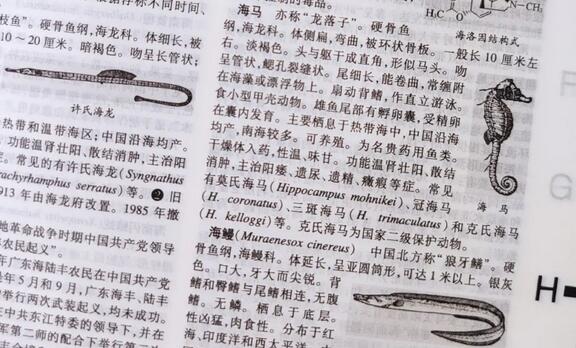 枝鱼”。硬骨鱼纲,海龙科。体细长,被
10～20厘米。暗褐色。吻呈长管状;
许氏海龙
热带和温带海区;中国沿海均产。
功能温肾壮阳、散结消肿,主治阳
定。常见的有许氏海龙(Syngnathus
achyrhamphus serratus)等。❷旧
913年由海龙府改置。1985年撤
地革命战争时期中国共产党领导
农民起义”。
年广东海陆丰农民在中国共产党
年5月和9月,广东海丰、陆丰
举行两次武装起义,均未成功。
在中共东江特委的领导下,并在
军第二师的配合下举行第三次
海马 亦称“龙落子”。硬骨鱼
纲,海龙科。体侧扁,弯曲,被环状骨板。一般长10厘米左
右。淡褐色。头与躯干成直角,形似马头。吻
呈管状,鳃孔裂缝状。尾细长,能卷曲,常缠附
在海藻或漂浮物上。扇动背鳍,作直立游泳。
食小型甲壳动物。雄鱼尾部有孵卵囊,受精卵
在囊内发育。主要栖息于热带海中,中国沿海
均产,南海较多。可养殖。为名贵药用鱼类。
干燥体入药,性温、味甘。功能温肾壮阳、散结
消肿,主治阳痿、遗尿、遗精、癥瘕等症。常见
有莫氏海马(Hippocampus mohnikei)、冠海马
(H. coronatus)、三斑海马(H. trimaculatus)和克氏海马
(H. kelloggi)等。克氏海马为国家二级保护动物。
海马
海鳗(Muraenesox cinereus) 中国北方称“狼牙鳝”。硬
骨鱼纲,海鳗科。体延长,呈亚圆筒形,可达1米以上。银灰
色。口大,牙大而尖锐。背
鳍和臀鳍与尾鳍相连,无腹
鳍。无鳞。栖息于底层。
性凶猛,肉食性。分布于红
海、印度洋和西太平洋
H₃C
N—CH₃
海洛因结构式
F
G
H